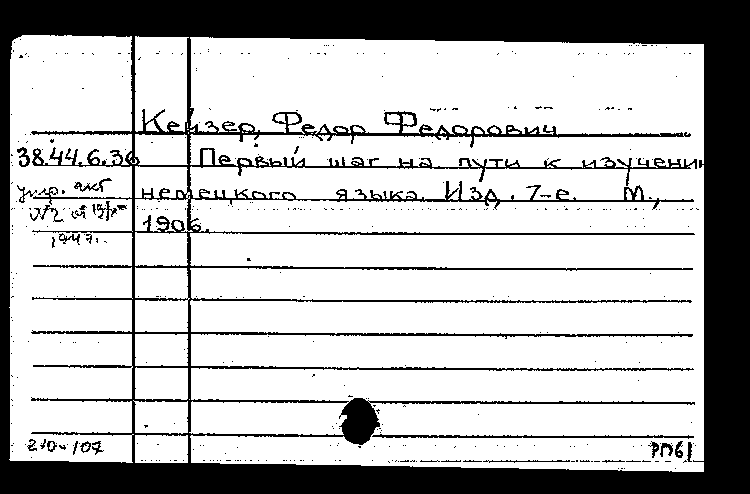 Кейзер, Федор Федорович
38.44.6.36 Первый шаг на пути к изучени
немецкого языка. Изд. 7-е. М.,
1906.
акт
№2 от
1947г.
210-107
РПБ1